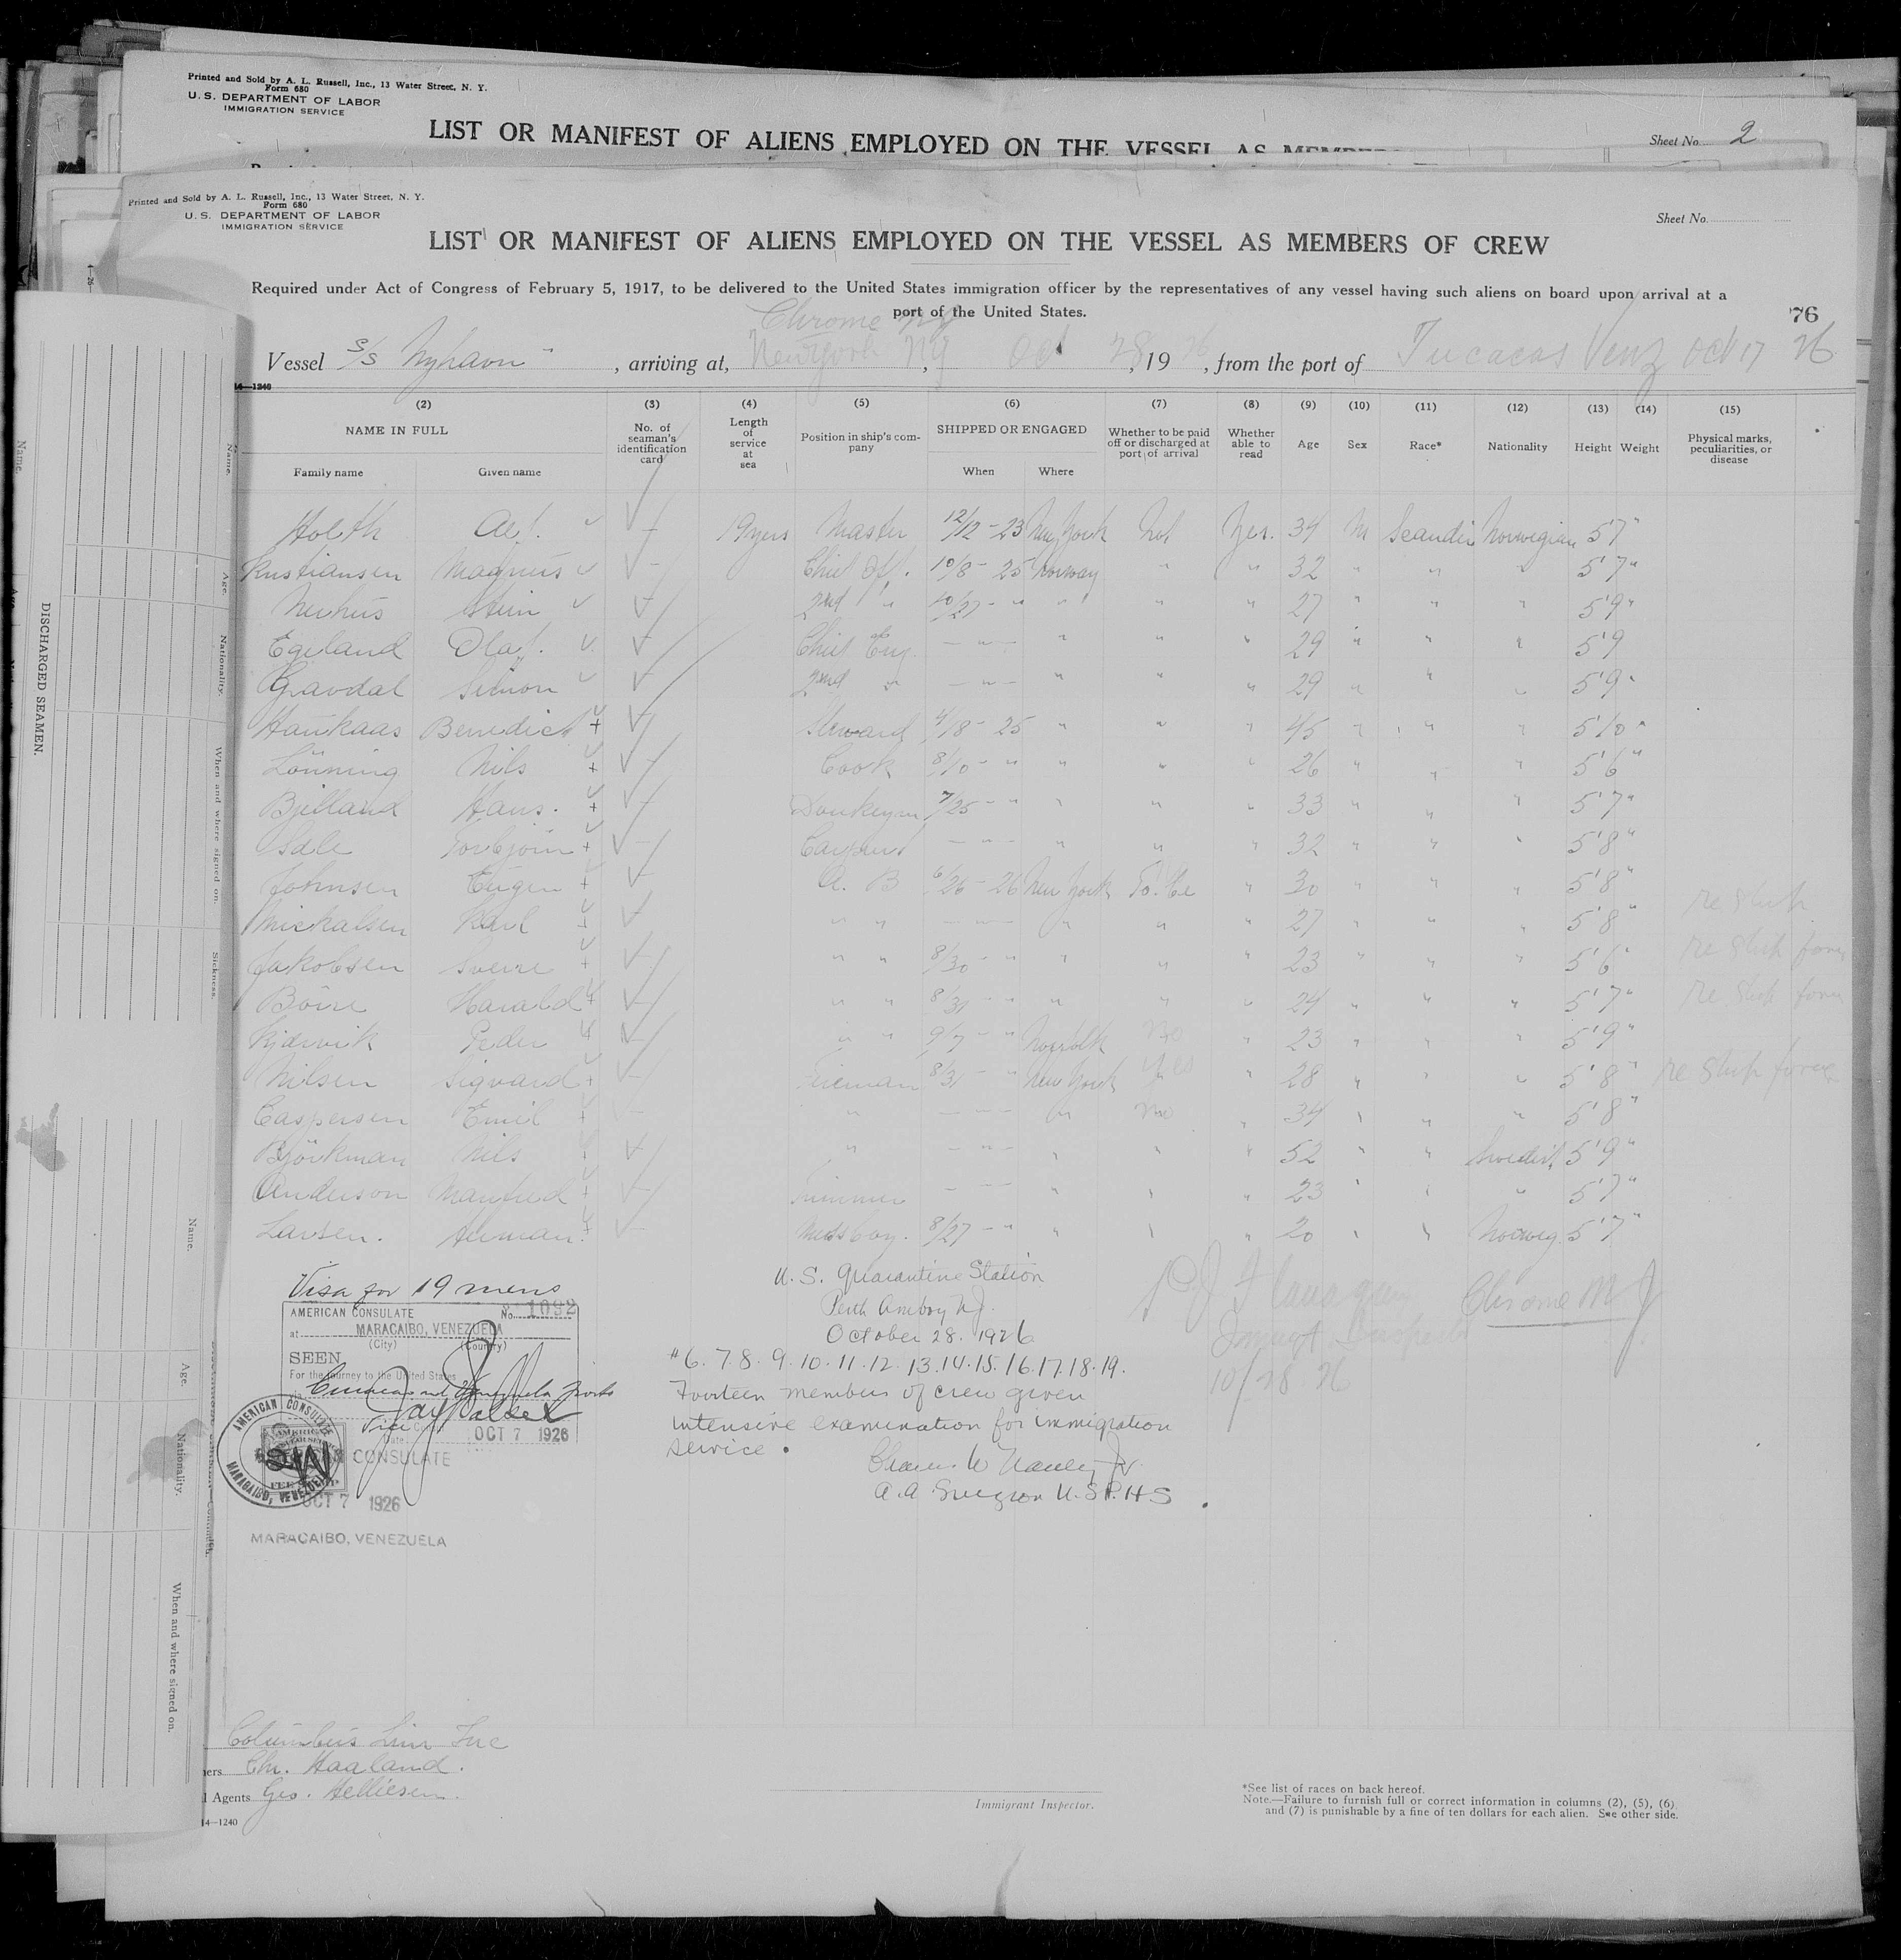 Printed and Sold by A. L. Russell, Inc., 13 Water Street, N. Y.
Form 680
U. S. DEPARTMENT OF LABOR
IMMIGRATION SERVICE
LIST OR MANIFEST OF ALIENS EMPLOYED ON THE VESSEL AS MEMBERS
Sheet No. 2
Printed and Sold by A. L. Russell, Inc., 13 Water Street, N. Y.
Form 680
U. S. DEPARTMENT OF LABOR
IMMIGRATION SERVICE
Sheet No.
LIST OR MANIFEST OF ALIENS EMPLOYED ON THE VESSEL AS MEMBERS OF CREW
Required under Act of Congress of February 5, 1917, to be delivered to the United States immigration officer by the representatives of any vessel having such aliens on board upon arrival at a
port of the United States.
76
Chrome NJ
Vessel S/S Nyhavn, arriving at, New York NY, Oct 28, 1926, from the port of Tucacas Venz Oct 17 26
14—1240
(2) (3) (4) (5) (6) (7) (8) (9) (10) (11) (12) (13) (14) (15)
NAME IN FULL
Family name Given name
No. of seaman's identification card
Length of service at sea
Position in ship's company
SHIPPED OR ENGAGED
When Where
Whether to be paid off or discharged at port of arrival
Whether able to read
Age
Sex
Race*
Nationality
Height
Weight
Physical marks, peculiarities, or disease
Holth Alf. 19 yers Master 12/12 - 23 New York Not Yes. 34 M Scandin Norwegian 5'7"
Kristiansen Magnus Chief Off. 10/8 - 25 Norway " " 32 " " " 5'7"
Stein 2nd " 10/27 - " " " " 27 " " " 5'9"
Egeland Olaf. Chief Eng. — " — " " " 29 " " " 5'9
Gravdal Simon 2nd " — " — " " " 29 " " " 5'9"
Haukaas Benedict + Steward 4/18 - 25 " " " 45 " " " 5'10"
Lönning Nils + Cook 8/10 - " " " " 26 " " " 5'6"
Bjelland Hans. + Donkeym 7/25 - " " " " 33 " " " 5'7"
Sale Torbjörn + — " — " " " 32 " " " 5'8"
Johnsen Eugen + A. B 6/26 - 26 New York To be " 30 " " " 5'8"
Mickalsen Karl + " " — " — " " " 27 " " " 5'8" re ship
Jakobsen Sverre + " " 8/30 - " " " " 23 " " " 5'6" re ship foreign
Böire Harald + " " 8/31 - " " " " 24 " " " 5'7" re ship foreign
Kjærvik Peder + " " 9/7 - " Norfolk No " 23 " " " 5'9"
Nilsen Sigvard + Fireman 8/31 - " New York Yes " 28 " " " 5'8" re ship foreign
Caspersen Emil + " — " — " No " 34 " " " 5'8"
Björkman Nils + " — " — " " " 52 " " Swedish 5'9"
Anderson Manfred + Trimmer — " — " " " 23 " " " 5'7"
Larsen. Herman. + Messboy. 8/27 - " " " " 20 " " Norweg. 5'7"
Visa for 19 mens
AMERICAN CONSULATE No. 1092
at MARACAIBO, VENEZUELA
(City) (Country)
SEEN
For the journey to the United States
via
Vice Consul
Date OCT 7 1926
AMERICAN CONSULATE
MARACAIBO, VENEZUELA
CONSULATE
OCT 7 1926
MARACAIBO, VENEZUELA
U. S. Quarantine Station
Perth Amboy N.J.
October 28. 1926
# 6. 7. 8. 9. 10. 11. 12. 13. 14. 15. 16. 17. 18. 19.
Fourteen members of crew given
intensive examination for immigration
service.
A. A Surgeon U. S. P. H. S.
P J Flanagan Chrome N J
Immigt Inspector
10/28 26
Columbus Line Inc
ners Chr. Haaland.
l Agents Geo. Helliesen.
14—1240
Immigrant Inspector.
*See list of races on back hereof.
Note.—Failure to furnish full or correct information in columns (2), (5), (6)
and (7) is punishable by a fine of ten dollars for each alien. See other side.
DISCHARGED SEAMEN.
Name.
Age.
Nationality.
When and where signed on.
Sickness.
Name.
Age.
Nationality.
When and where signed on.